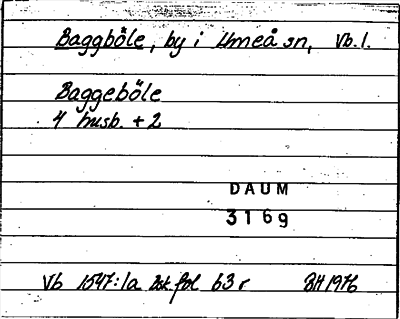 Baggböle, by i Umeå sn, Vb. l.
Baggeböle
4 husb. + 2
DAUM
3169
Vb 1547:1a fol 63 r BH 1976